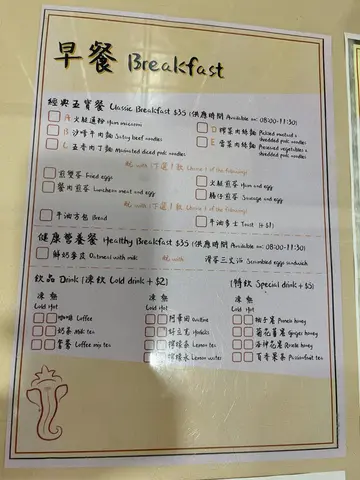 早餐 Breakfast
經典五寶餐 Classic Breakfast $35 (供應時間 Available on: 08:00-11:30)
A 火腿通粉 Ham macaroni
B 沙嗲牛肉麵 Satay beef noodles
C 五香肉丁麵 Marinated diced pork noodles
D 榨菜肉絲麵 Pickled mustard & shredded pork noodles
E 雪菜肉絲麵 Preserved vegetables & shredded pork noodles
配 with (下選1款 Choose 1 of the following)
煎雙蛋 Fried eggs
火腿煎蛋 Ham and egg
餐肉煎蛋 Luncheon meat and egg
腸仔煎蛋 Sausage and egg
配 with (下選1款 Choose 1 of the following)
牛油方包 Bread
牛油多士 Toast (+$1)
健康營養餐 Healthy Breakfast $35 (供應時間 Available on: 08:00-11:30)
鮮奶麥皮 Oatmeal with milk 配 with 滑蛋三文治 Scrambled eggs sandwich
飲品 Drink (凍飲 Cold drink + $2)
凍 熱
Cold Hot
咖啡 Coffee
奶茶 Milk tea
鴛鴦 Coffee mix tea
凍 熱
Cold Hot
阿華田 Ovaltine
好立克 Horlicks
檸檬茶 Lemon tea
檸檬水 Lemon water
(特飲 Special drink +$5)
凍 熱
Cold Hot
柚子蜜 Pomelo honey
菊花薑蜜 Ginger honey
洛神花蜜 Roselle honey
百香果茶 Passionfruit tea